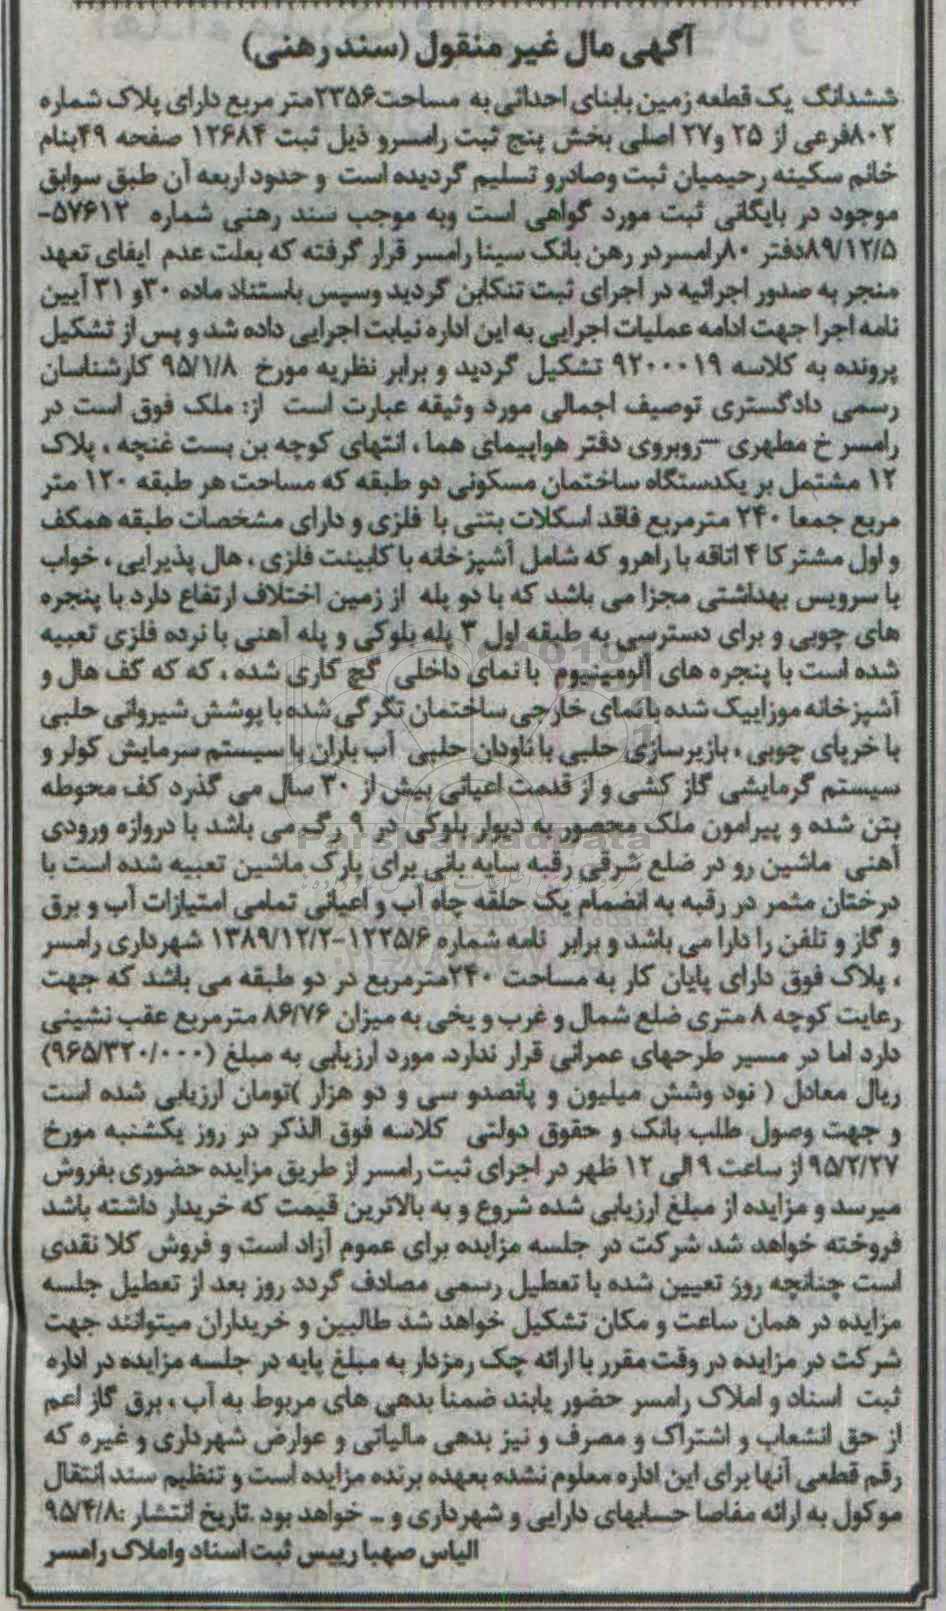 آگهی مال غیر منقول (سند رهنی)
ششدانگ یک قطعه زمین بابنای احداثی به مساحت ۲۳۵۶متر مربع دارای پلاک شماره
۸۰۲فرعی از ۲۵ و۲۷ اصلی بخش پنج ثبت رامسرو ذیل ثبت ۱۲۶۸۴ صفحه ۴۹بنام
خانم سکینه رحیمیان ثبت وصادرو تسلیم گردیده است و حدود اربعه آن طبق سوابق
موجود در بایگانی ثبت مورد گواهی است وبه موجب سند رهنی شماره ۵۷۶۱۲-
۸۹/۱۲/۵دفتر ۸۰رامسردر رهن بانک سینا رامسر قرار گرفته که بعلت عدم ایفای تعهد
منجر به صدور اجرائیه در اجرای ثبت تنکابن گردید وسپس باستناد ماده ۳۰و ۳۱ آیین
نامه اجرا جهت ادامه عملیات اجرایی به این اداره نیابت اجرایی داده شد و پس از تشکیل
پرونده به کلاسه ۹۲۰۰۰۱۹ تشکیل گردید و برابر نظریه مورخ ۹۵/۱/۸ کارشناسان
رسمی دادگستری توصیف اجمالی مورد وثیقه عبارت است از: ملک فوق است در
رامسر خ مطهری –روبروی دفتر هواپیمای هما ، انتهای کوچه بن بست غنچه ، پلاک
۱۲ مشتمل بر یکدستگاه ساختمان مسکونی دو طبقه که مساحت هر طبقه ۱۲۰ متر
مربع جمعا ۲۴۰ مترمربع فاقد اسکلات بتنی با فلزی و دارای مشخصات طبقه همکف
و اول مشترکا ۴ اتاقه با راهرو که شامل آشپزخانه با کابینت فلزی ، هال پذیرایی ، خواب
با سرویس بهداشتی مجزا می باشد که با دو پله از زمین اختلاف ارتفاع دارد با پنجره
های چوبی و برای دسترسی به طبقه اول ۳ پله بلوکی و پله آهنی با نرده فلزی تعبیه
شده است با پنجره های آلومینیوم با نمای داخلی گچ کاری شده ، که که کف هال و
آشپزخانه موزاییک شده بانمای خارجی ساختمان تگرگی شده با پوشش شیروانی حلبی
با خرپای چوبی ، بازیرسازی حلبی با ناودان حلبی آب باران با سیستم سرمایش کولر و
سیستم گرمایشی گاز کشی و از قدمت اعیانی بیش از ۳۰ سال می گذرد کف محوطه
بتن شده و پیرامون ملک محصور به دیوار بلوکی در ۹ رگ می باشد با دروازه ورودی
آهنی ماشین رو در ضلع شرقی رقبه سایه بانی برای پارک ماشین تعبیه شده است با
درختان مثمر در رقبه به انضمام یک حلقه چاه آب و اعیانی تمامی امتیازات آب و برق
و گاز و تلفن را دارا می باشد و برابر نامه شماره ۱۲۲۵/۶-۱۳۸۹/۱۲/۲ شهرداری رامسر
، پلاک فوق دارای پایان کار به مساحت ۲۴۰مترمربع در دو طبقه می باشد که جهت
رعایت کوچه ۸ متری ضلع شمال و غرب و یخی به میزان ۸۶/۷۶ مترمربع عقب نشینی
دارد اما در مسیر طرحهای عمرانی قرار ندارد. مورد ارزیابی به مبلغ (۹۶۵/۳۲۰/۰۰۰)
ریال معادل ( نود وشش میلیون و پانصدو سی و دو هزار )تومان ارزیابی شده است
و جهت وصول طلب بانک و حقوق دولتی کلاسه فوق الذکر در روز یکشنبه مورخ
۹۵/۲/۲۷ از ساعت ۹الی ۱۲ ظهر در اجرای ثبت رامسر از طریق مزایده حضوری بفروش
میرسد و مزایده از مبلغ ارزیابی شده شروع و به بالاترین قیمت که خریدار داشته باشد
فروخته خواهد شد شرکت در جلسه مزایده برای عموم آزاد است و فروش کلا نقدی
است چنانچه روز تعیین شده با تعطیل رسمی مصادف گردد روز بعد از تعطیل جلسه
مزایده در همان ساعت و مکان تشکیل خواهد شد طالبین و خریداران میتوانند جهت
شرکت در مزایده در وقت مقرر با ارائه چک رمزدار به مبلغ پایه در جلسه مزایده در اداره
ثبت اسناد و املاک رامسر حضور یابند ضمنا بدهی های مربوط به آب ، برق گاز اعم
از حق انشعاب و اشتراک و مصرف و نیز بدهی مالیاتی و عوارض شهرداری و غیره که
رقم قطعی آنها برای این اداره معلوم نشده بعهده برنده مزایده است و تنظیم سند انتقال
موکول به ارائه مفاصا حسابهای دارایی و شهرداری و ... خواهد بود .تاریخ انتشار :۹۵/۴/۸
الیاس صهبا رییس ثبت اسناد واملاک رامسر
ParsNamadData